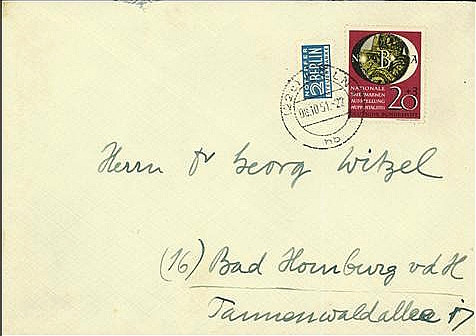 NOTOPFER
2 BERLIN
STEUERMARKE
N B A
NATIONALE
BRIEFMARKEN
AUSSTELLUNG
WUPPERTAL 1951
20+3
DEUTSCHE BUNDESPOST
08.10.51.-22
Herrn Dr Georg Witzel
(16) Bad Homburg v d H
Tannenwaldallee